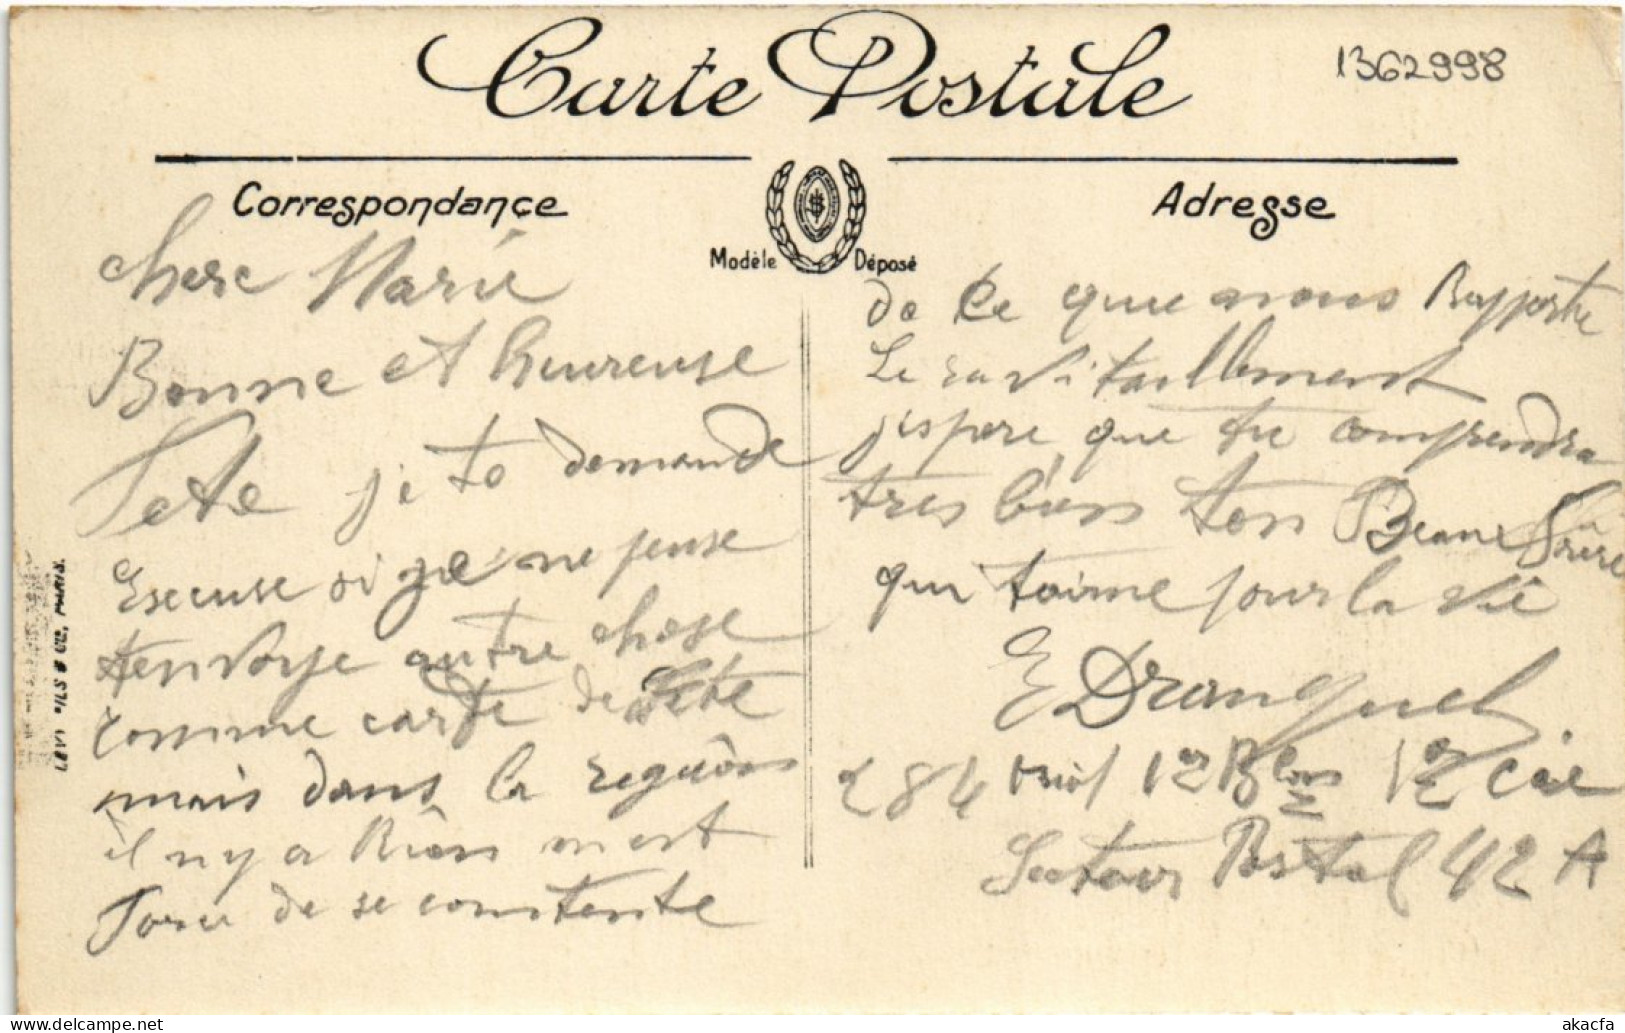 Carte Postale
1362998
Correspondance
Adresse
Modèle Déposé
LEVY FILS & Cie, PARIS.
chere Marie
Bonne et hureuse
Fete je te demande
Escuse si je ne peuse
t'envoyé autre chose
comme carte de Fete
mais dans la Regiôns
il n'y a Riens on est
Forcé de se contente
de ce que nous Rapporte
Le ravitaillement
j'espere que tu comprendra
tres biens ton Beaux Frère
qui t'aime pour la vie
E Dranguel
284 1er Blons 1er Cie
Secteur Postal 42 A
www.delcampe.net
akacfa